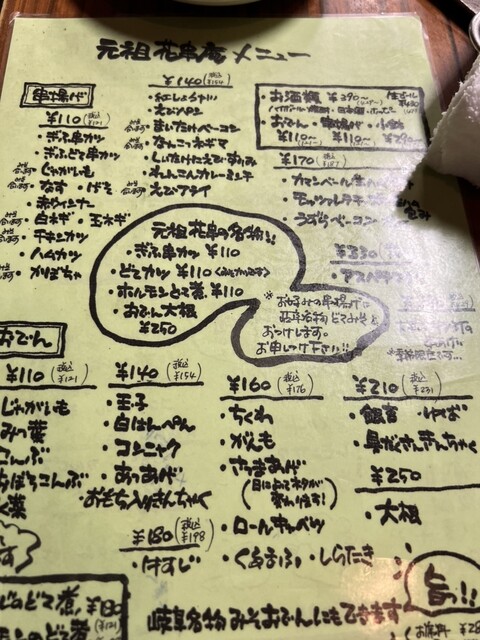 元祖 花串庵 メニュー
串揚げ
¥110(税込¥121)
・ぎふ串カツ
・ぎふどて串カツ
・じゃがいも
・なす ・ぱも
・赤ウインナー
・白ネギ ・玉ネギ
・チキンカツ
・ハムカツ
・かぼちゃ
¥140(税込¥154)
・紅しょうが
・まいたけベーコン
・なんこつネギマ
・れんこんカレーミンチ
・えびフライ
・お酒類 ¥390〜
生ビール ¥430
・おでん ・串揚げ ・小鉢
¥110〜 ¥110〜 ¥290〜
¥170(税込¥187)
・カマンベール生ハム
・モッツァレラチ
・うずらベーコン
包み
元祖花串の名物!!
・ぎふ串カツ ¥110
・どてカツ ¥110
・ホルモンどて煮 ¥110
・おでん大根
¥250
※お好みの串揚げに
岐阜名物どてみそを
おつけします。
お申しつけ下さい!!
¥330
・アスパラ
おでん
¥110(税込¥121)
じゃがいも
みつ葉
こんぶ
おぼろこんぶ
¥140(税込¥154)
・玉子
・白はんぺん
・コンニャク
・あつあげ
・おもち入りきんちゃく
¥180(税込¥198)
・牛すじ
¥160(税込¥176)
・ちくわ
・がんも
・さつまあげ
(日によってネタが変わります!)
・ロールキャベツ
・くるまふ ・しらたき
¥210(税込¥231)
・餃吉 ・ゆば
・具だくさんきんちゃく
¥250
・大根
旨っ!!
のどて煮 ¥180
のどて煮 ¥110
岐阜名物 みそおでんにもできます